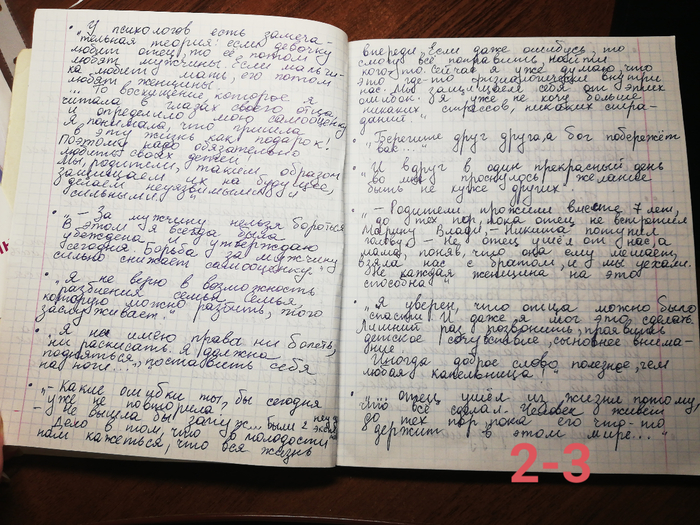 • „У психологов есть замеча-
тельная теория: если девочку
любит отец, то её потом
любят мужчины. Если мальчи-
ка любит мать, его потом
любят женщины.
... То восхищение, которое я
читала в глазах своего отца,
и определило мою самооценку.
Я понимала, что пришла
в эту жизнь как подарок!
Поэтому надо обязательно
любить своих детей!
Мы, родители, таким образом
защищаем их на будущее,
делаем неуязвимыми и
сильными."
• „- За мужчину нельзя бороться.
В этом я всегда была
убеждена и утверждаю
сегодня. Борьба за мужчину
сильно снижает самооценку."
• „Я не верю в возможность
разбиения семьи. Семья,
которую можно разбить, этого
заслуживает."
• „Я не имею права ни болеть,
ни раскисать. Я должна
подняться, поставить себя
на ноги..."
• „- Какие ошибки ты бы сегодня
уже не повторила?
- Не вышла бы замуж... были 2
Дело в том, что в молодости
нам кажеться, что вся жизнь
впереди. Если даже ошибусь, то
смогу всё поправить, найти
кого-то. Сейчас я уже думаю, что
это где-то физиологически внутри
нас. Мы защищаем себя от этих
ошибок. Я уже не хочу больше
никаких стрессов, никаких стра-
даний"
• „Берегите друг друга, а бог побережёт
вас."
• „И вдруг в один прекрасный день
во мне проснулось желание
быть не хуже других."
• „- Родители прожили вместе 7 лет,
до тех пор, пока отец не встретил
Марину Влади, - Никита потупил
голову. - Не отец ушёл от нас, а
мама, поняв, что она ему мешает,
взяла нас с братом, и мы уехали.
Не каждая женщина на это
способна"
• „Я уверен, что отца можно было
спасти. И даже я мог это сделать.
Лишний раз позвонить, проявить
детское сочувствие, сыновнее внима-
ние
Иногда доброе слово полезнее, чем
любая капельница!"
• „... отец ушёл из жизни потому,
что всё сделал. Человек живёт
до тех пор, пока его что-то
держит в этом мире..."
2-3